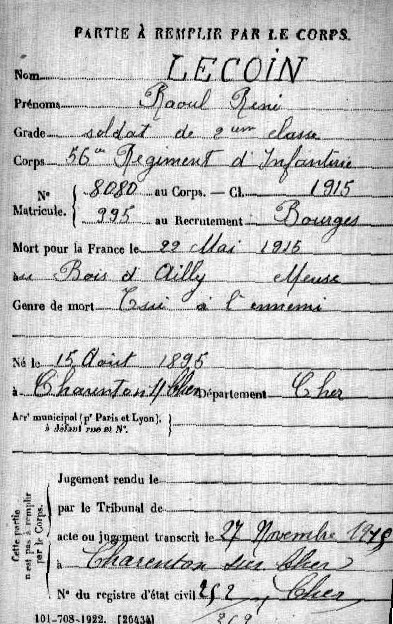 PARTIE À REMPLIR PAR LE CORPS.
Nom LECOIN
Prénoms Raoul René
Grade soldat de 2ème classe
Corps 56ème Régiment d'Infanterie
N° Matricule. { 8080 au Corps. — Cl. 1915
995 au Recrutement Bourges
Mort pour la France le 22 Mai 1915
au Bois d'Ailly Meuse
Genre de mort Tué à l'ennemi
Né le 15 Août 1895
à Charenton s/ Cher Département Cher
Arrt municipal (pr Paris et Lyon), }
à défaut rue et N°.
Cette partie n'est pas à remplir par le Corps.
Jugement rendu le
par le Tribunal de
acte ou jugement transcrit le 27 Novembre
à Charenton sur Cher
N° du registre d'état civil 252 Cher
101-708-1922. [26434]